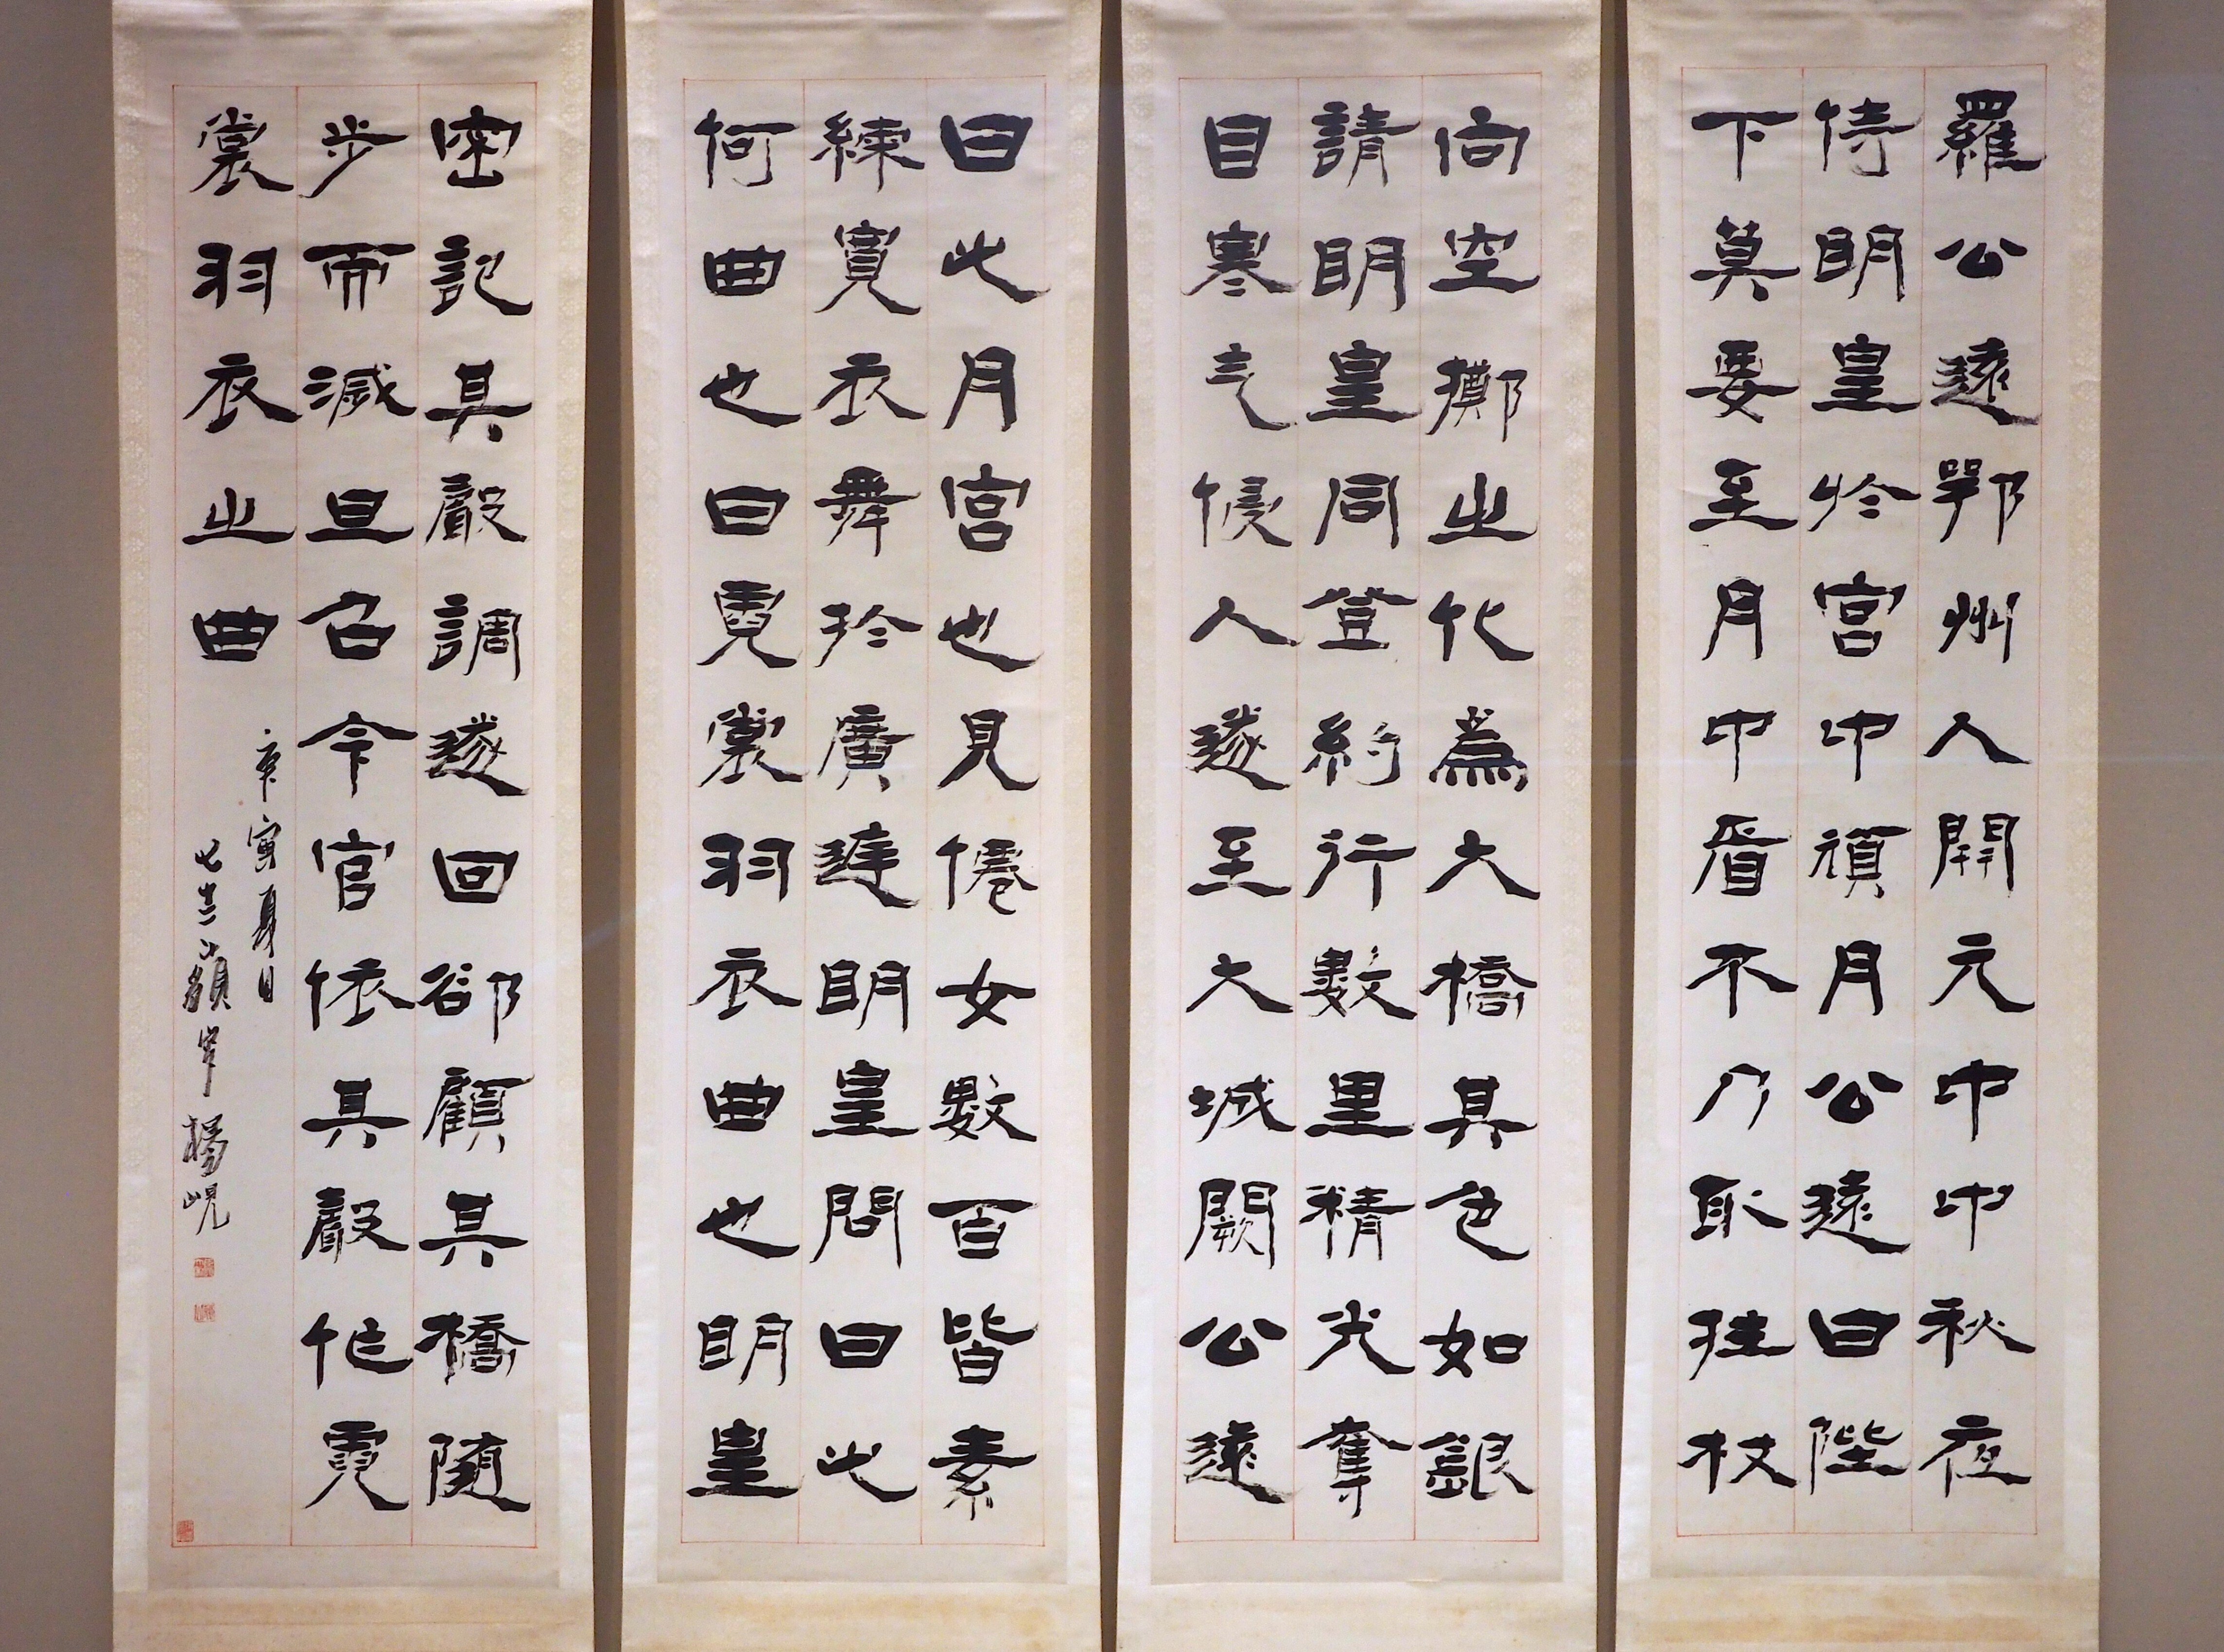 羅公遠鄂州人開元中中秋夜
侍明皇於宮中頑月公遠曰陛
下莫要至月中看不乃取拄杖
向空擲之化為大橋其色如銀
請明皇同登約行數里精光奪
目寒气侵人遂至大城闕公遠
曰此月宮也見僊女數百皆素
練寬衣舞於廣廷明皇問曰此
何曲也曰霓裳羽衣曲也明皇
密記其聲調遂回卻顧其橋隨
步而滅旦召令官依其聲作霓
裳羽衣之曲
庚寅夏日
楊峴